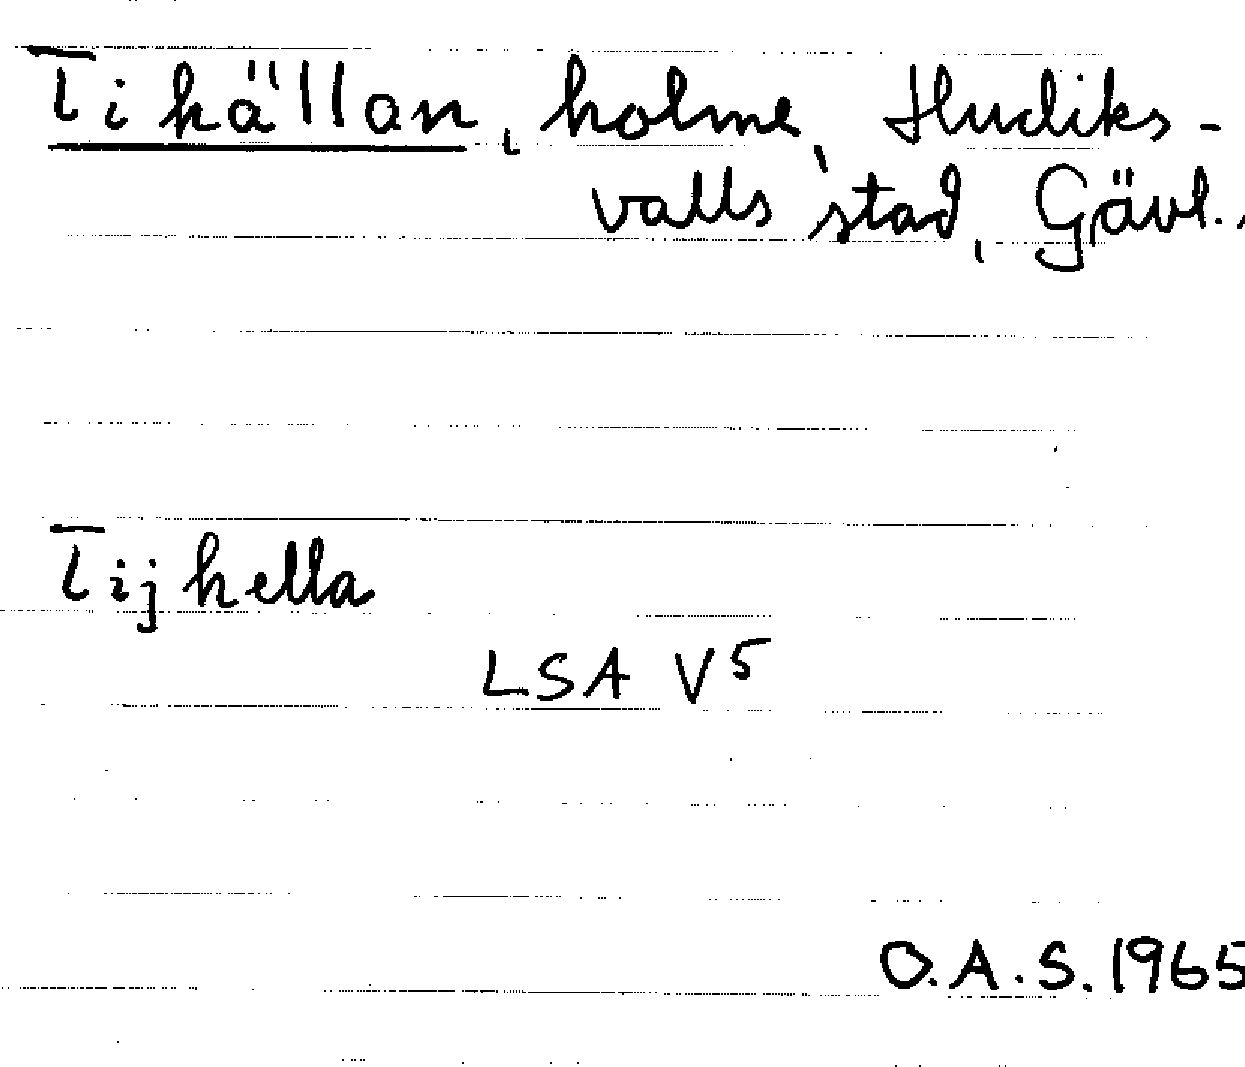 Tihällan, holme, Hudiks-
valls stad, Gävl..
Tijhella
LSA V5
O.A.S. 1965